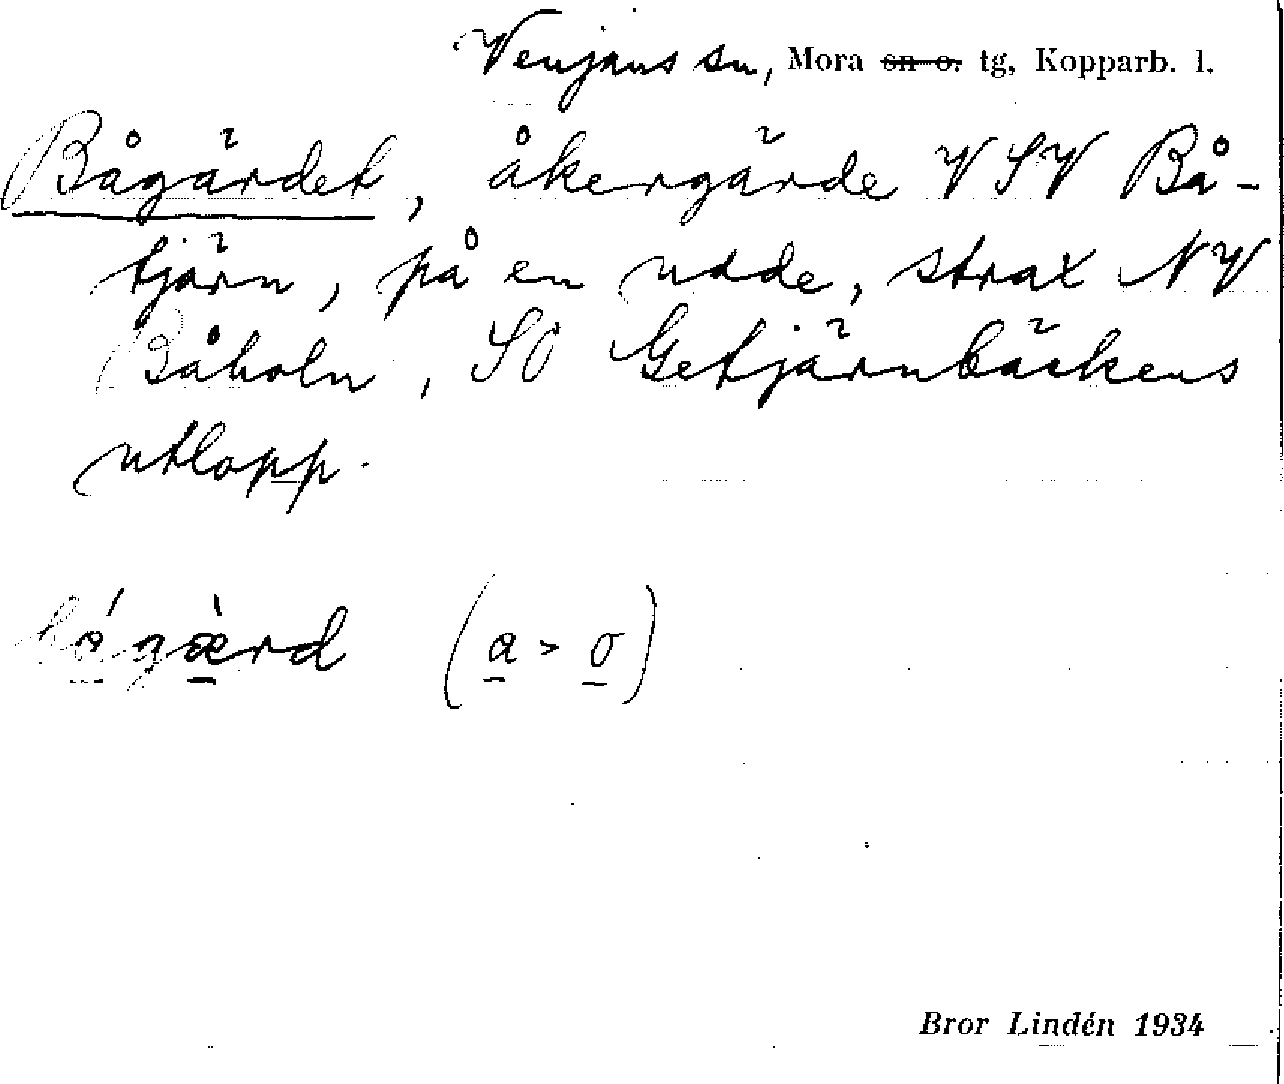 Venjans sn, Mora sn o. tg, Kopparb. l.
Bågärdet, åkergärde VSV Bå-
tjärn, på en udde, strax NV
Båholn, SO Getjärnbäckens
utlopp.
bágæ̀rd (a > o)
Bror Lindén 1934